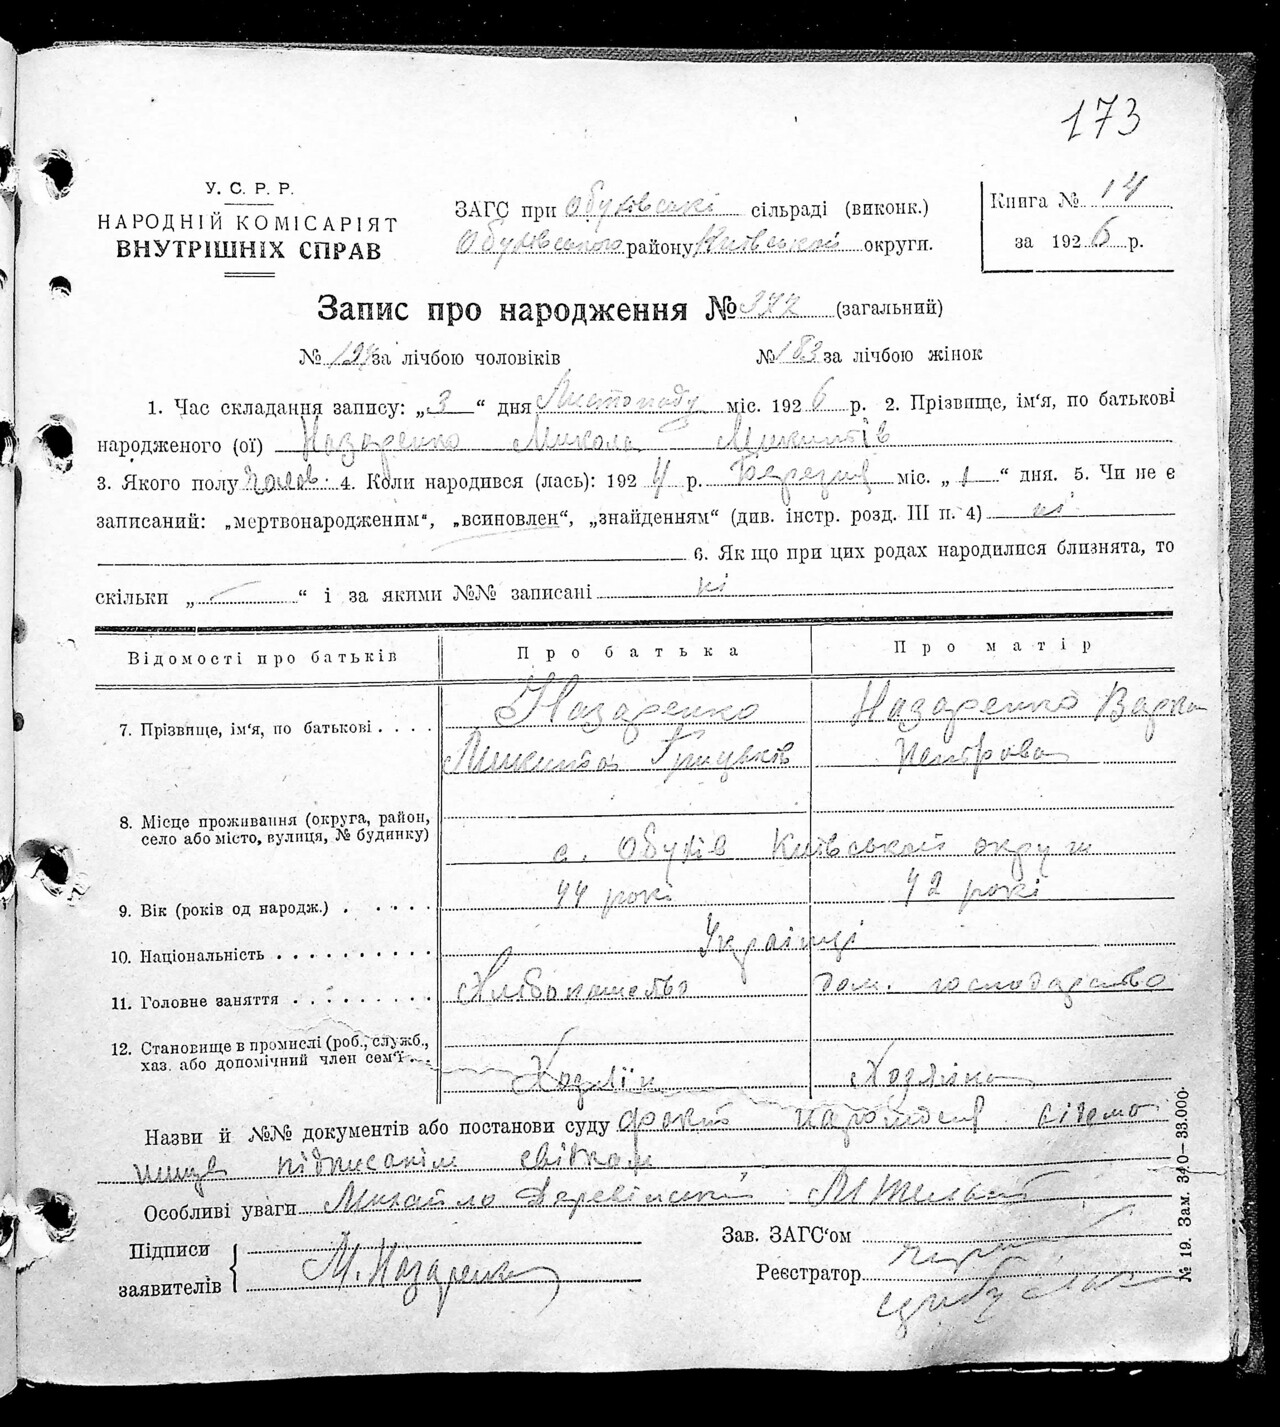 173
У. С. Р. Р.
НАРОДНІЙ КОМІСАРІЯТ
ВНУТРІШНІХ СПРАВ
ЗАГС при Обухівські сільраді (виконк.)
Обухівського району Київської округи.
Книга № 14
за 1926 р.
Запис про народження № 372 (загальний)
№ за лічбою чоловіків № 183 за лічбою жінок
1. Час складання запису: „3“ дня Листопаду міс. 1926 р. 2. Прізвище, ім'я, по батькові
народженого (ої) Назаренко Микола Микитів
3. Якого полу чолов. 4. Коли народився (лась): 1924 р. Березня міс. „1“ дня. 5. Чи не є
записаний: „мертвонародженим“, „всиновлен“, „знайденням“ (див. інстр. розд. III п. 4) ні
6. Як що при цих родах народилися близнята, то
скільки „ “ і за якими №№ записані ні
Відомості про батьків Про батька Про матір
7. Прізвище, ім'я, по батькові . . . . Назаренко Назаренко Варка
Микита Грицьків Петрова
8. Місце проживання (округа, район,
село або місто, вулиця, № будинку)
с. Обухів Київської округи
9. Вік (років од народж.) . . . . . . 44 рокі 42 рокі
10. Національність . . . . . . . . . . Українці
11. Головне заняття . . . . . . . . . Хліборобство дом. господарство
12. Становище в промислі (роб., служб.,
хаз. або допомічний член сем'ї . . . Хозяїн Хозяйка
Назви й №№ документів або постанови суду факт народження відомо
нище підписанім свідкам
Особливі уваги Михайло Деревінський
Підписи
заявителів М. Назаренко
Зав. ЗАГС'ом
Реєстратор
№ 19. Зам. 340—33.000.